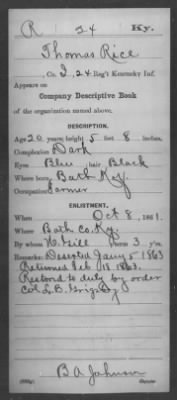 R 24 Ky.
Thomas Rice
, Co. I, 24 Reg't Kentucky Inf.
Appears on
Company Descriptive Book
of the organization named above.
DESCRIPTION.
Age 20 years; height 5 feet 8 inches.
Complexion Dark
Eyes Blue; hair Black
Where born Bath Ky.
Occupation Farmer
ENLISTMENT.
When Oct 8, 1861.
Where Bath Co. Ky.
By whom H. Gill; term 3 y'rs.
Remarks: Deserted Jany 5 1863
Returned Feb 18 1863.
Restord to duty by order
Col L.B. Grigsby
B A Johnson